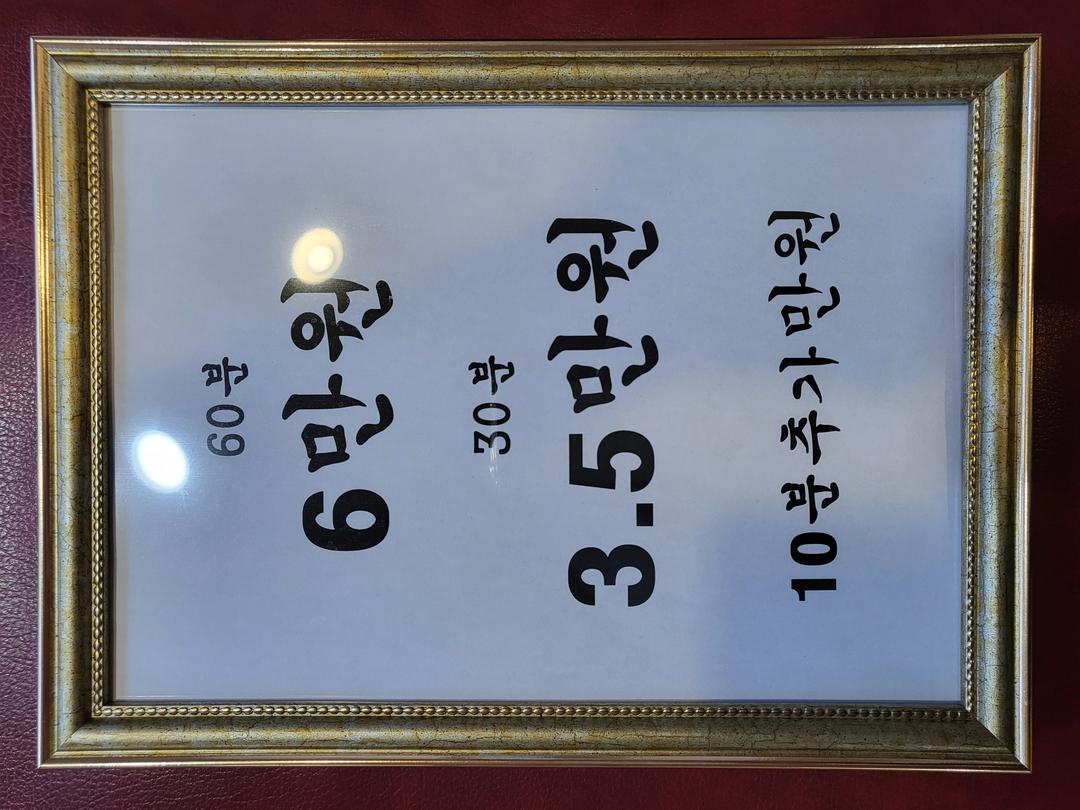 60분
6만원
30분
3.5만원
10분추가만원